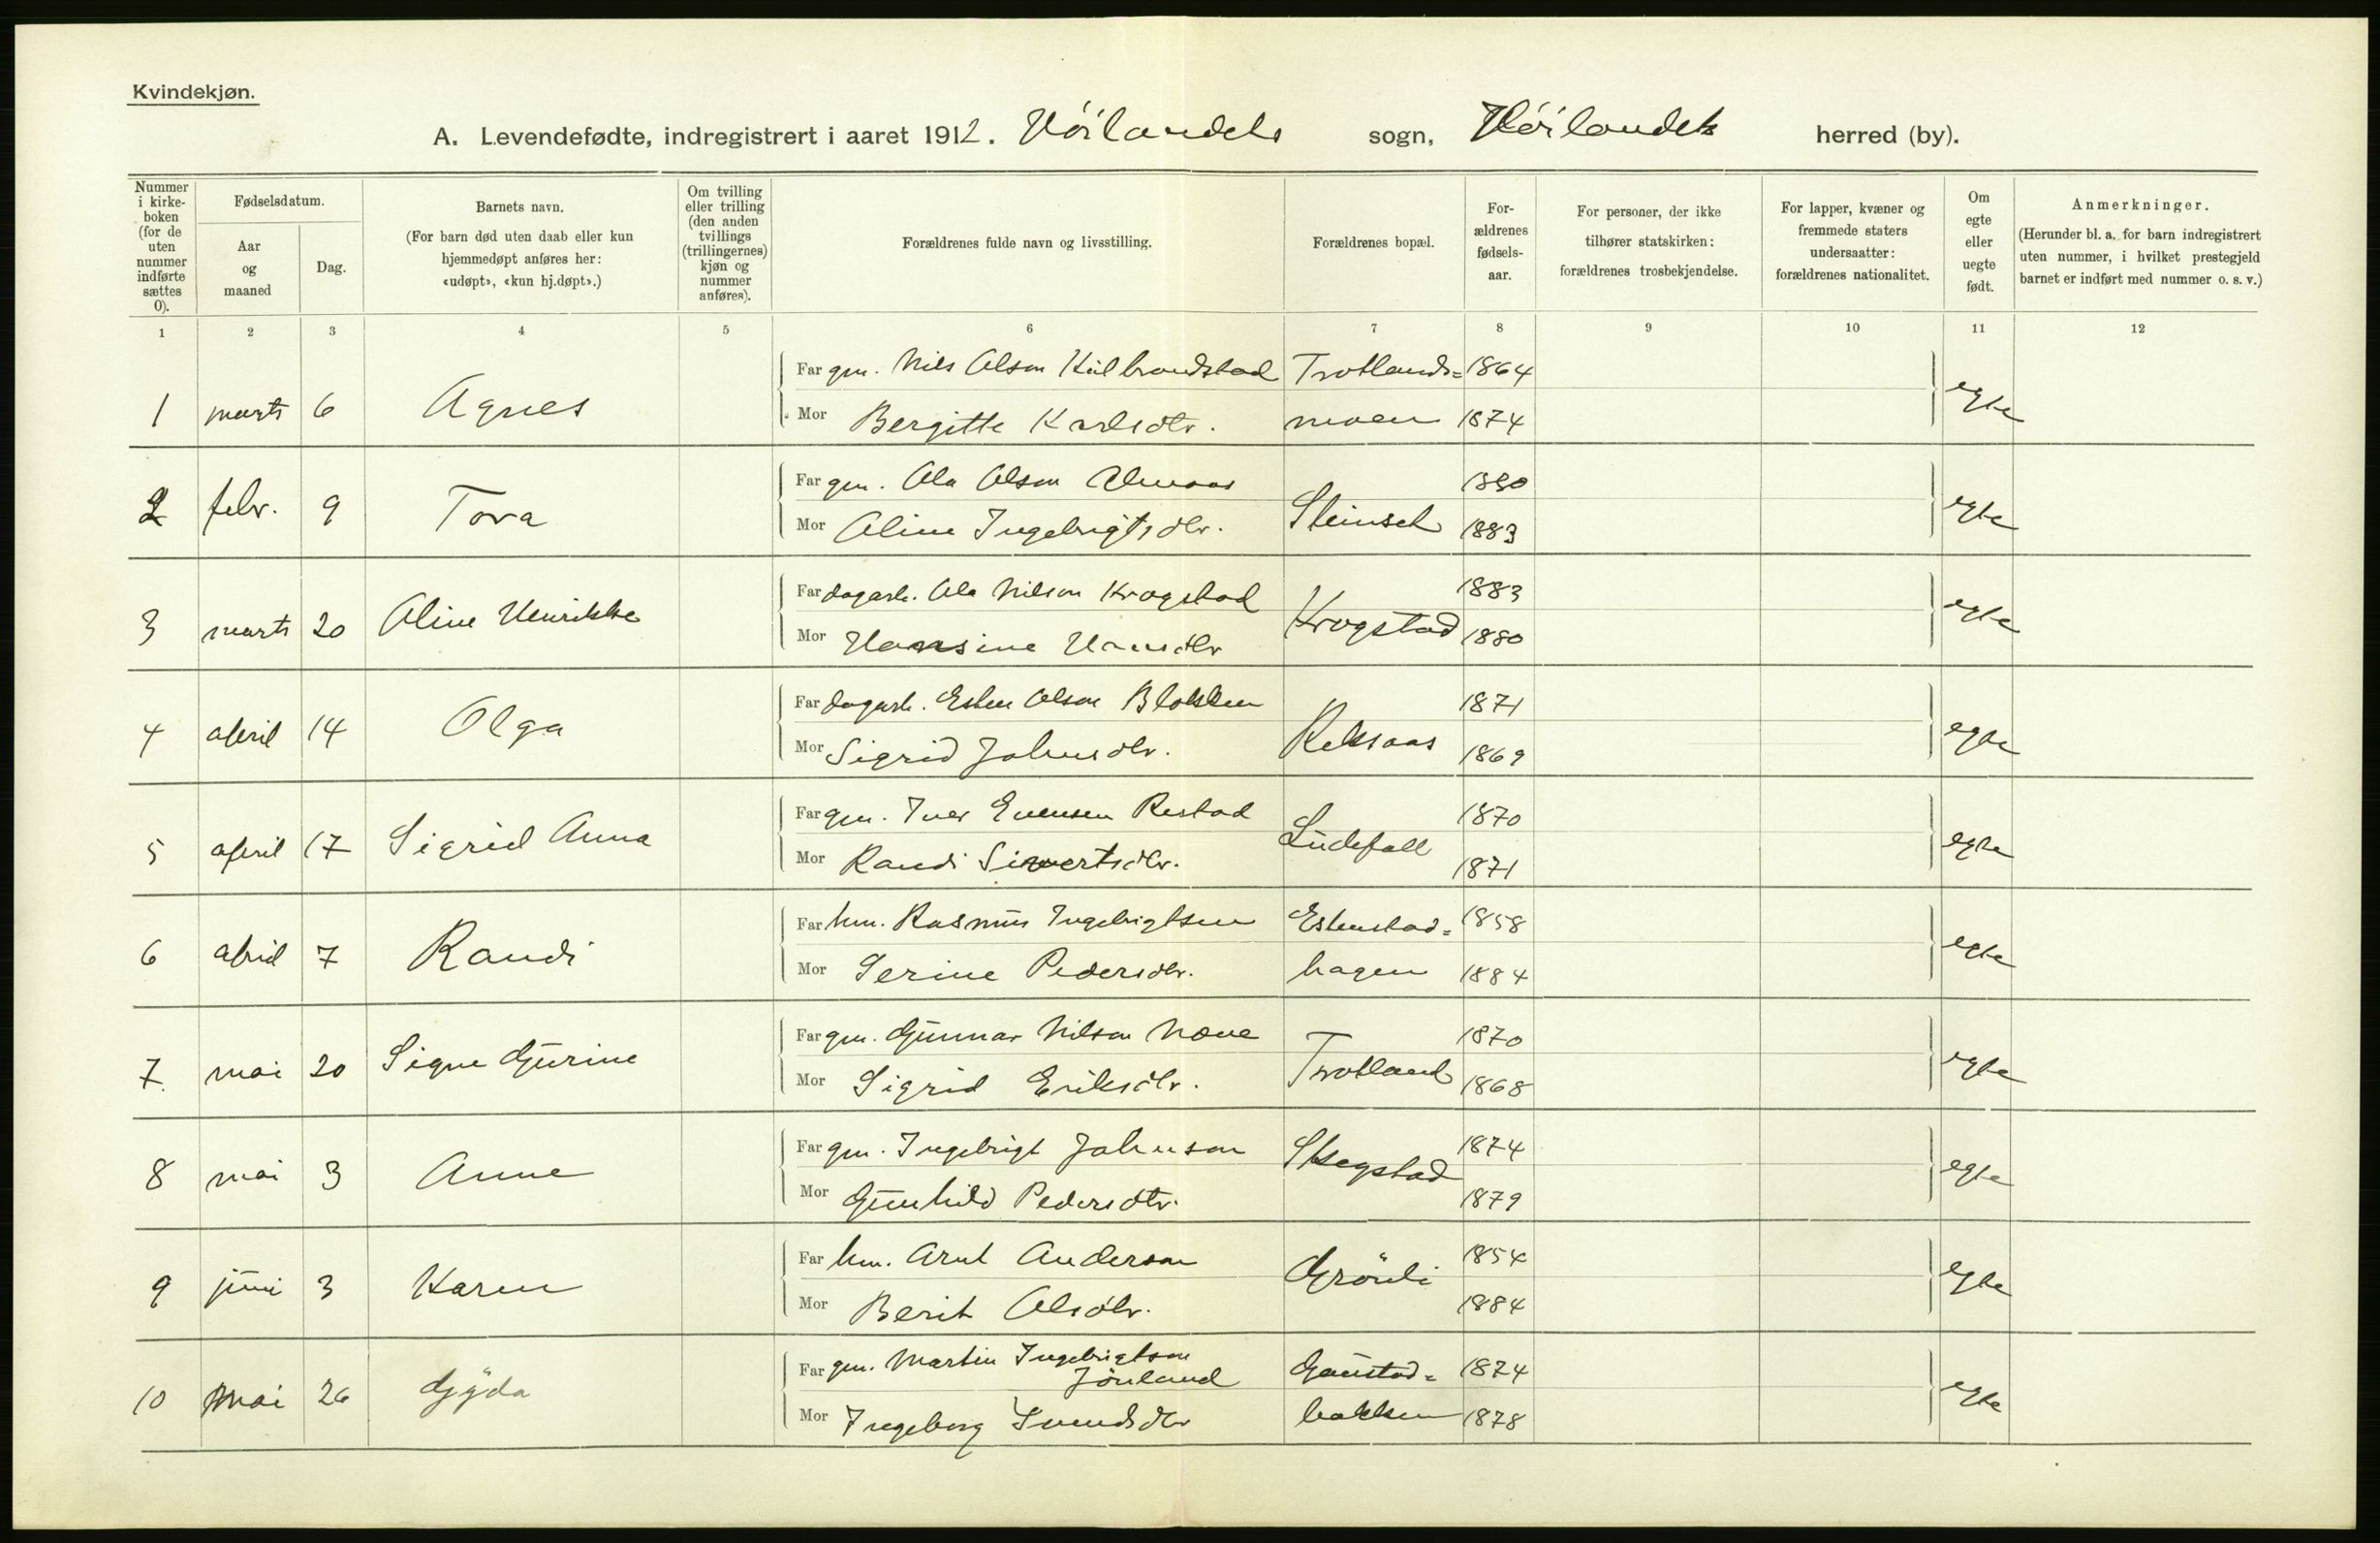 Kvindekjøn.
A. Levendefødte, indregistrert i aaret 1912. Höilandets sogn, Höilandets herred (by).
Nummer i kirke-boken (for de uten nummer indførte sættes 0).
Fødselsdatum.
Aar og maaned
Dag.
Barnets navn.
(For barn død uten daab eller kun hjemmedøpt anføres her: «udøpt», «kun hj.døpt».)
Om tvilling eller trilling (den anden tvillings (trillingernes) kjøn og nummer anføres).
Forældrenes fulde navn og livsstilling.
Forældrenes bopæl.
For-ældrenes fødsels-aar.
For personer, der ikke tilhører statskirken: forældrenes trosbekjendelse.
For lapper, kvæner og fremmede staters undersaatter: forældrenes nationalitet.
Om egte eller uegte født.
Anmerkninger.
(Herunder bl. a. for barn indregistrert uten nummer, i hvilket prestegjeld barnet er indført med nummer o. s. v.)
1 2 3 4 5 6 7 8 9 10 11 12
Far gm. Nils Olson Kulbrandstad Trotlands= 1864
1 marts 6 Agnes egte
Mor Bergitte Karlsdtr. moen 1874
Far gm. Ola Olson Almaas 1880
2 febr. 9 Tora Steinset egte
Mor Aline Ingebrigtsdtr. 1883
Far dagarb. Ola Nilson Krogstad 1883
3 marts 20 Aline Henrikke Krogstad egte
Mor Hansine Hansdtr 1880
Far dagarb. Esten Olson 1871
4 april 14 Olga Reksaas egte
Mor Sigrid Johnsdtr. 1869
Far gm. Iver Evensen Restad 1870
5 april 17 Sigrid Anna egte
Mor Randi Sivertsdtr. 1871
Far hm. Rasmus Ingebrigtsen Estenstad= 1858
6 april 7 Randi egte
Mor Serine Pedersdtr. hagen 1884
Far gm. Gunnar Nilson 1870
7. mai 20 Signe Gurine Trotland egte
Mor Sigrid Eriksdtr. 1868
Far gm. Ingebrigt Johnson 1874
8 mai 3 Anne Skegstad egte
Mor Gunhild Pedersdtr. 1879
Far hm. Arnt Anderson 1854
9 juni 3 Karen Grönli egte
Mor Berit Olsdtr. 1884
Far gm. Martin Ingebrigtson
Jörland Gaustad= 1874
10 mai 26 Gyda egte
Mor Ingeborg Svendsdtr bakken 1878